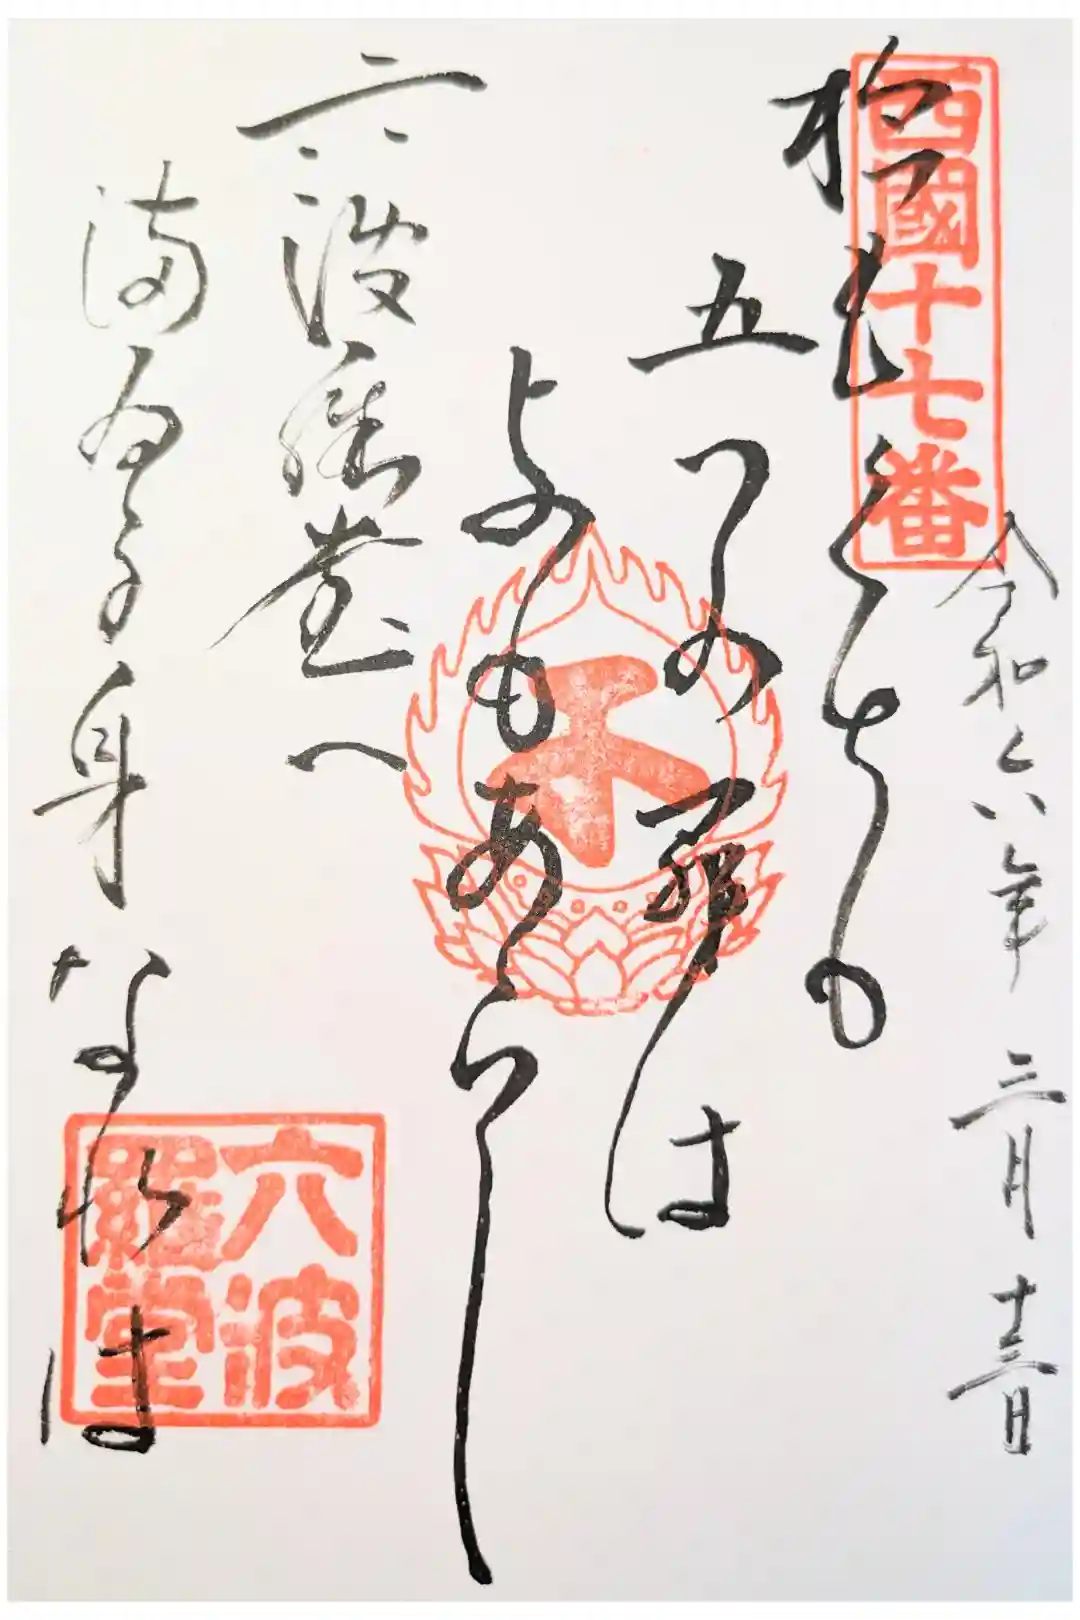 西國十七番
令和六年 三月 十三日
扵もくとも
五つの罪は
よもあらし
六波羅堂へ
満為る身なれは
六波羅堂